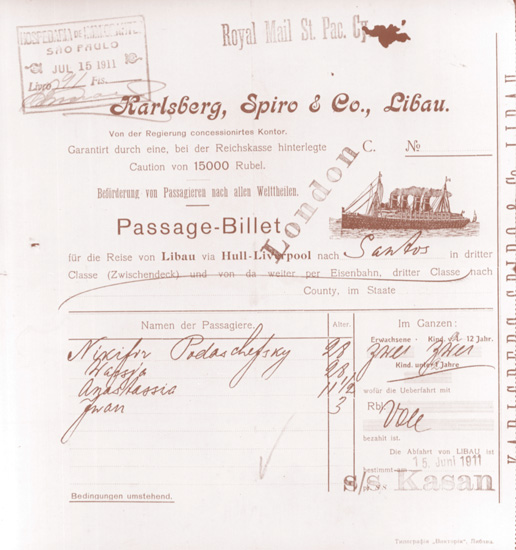 Royal Mail St. Pac. C
HOSPEDARIA DE IMMIGRANTES
SÃO PAULO
JUL 15 1911
Livro 91 Fls.
Karlsberg, Spiro & Co., Libau.
Von der Regierung concessionirtes Kontor.
Garantirt durch eine, bei der Reichskasse hinterlegte
Caution von 15000 Rubel.
C. №
Beförderung von Passagieren nach allen Welttheilen.
London
Passage-Billet
für die Reise von Libau via Hull-Liverpool nach Santos in dritter
Classe (Zwischendeck) und von da weiter per Eisenbahn, dritter Classe nach
County, im Staate
Namen der Passagiere.
Alter.
Nikifir Podaschefsky 28
Wassja 28
Anastassia 1 1/2
Iwan 3
Im Ganzen:
Erwachsene - Kind. à 12 Jahr.
zwei zwei
Kind. unter 1 Jahre
wofür die Ueberfahrt mit
Rbl. Voll
bezahlt ist.
Die Abfahrt von LIBAU ist
bestimmt am 15 Juni 1911
s/s. Kasan
Bedingungen umstehend.
KARLSBERG, SPIRO & Co. LIBAU